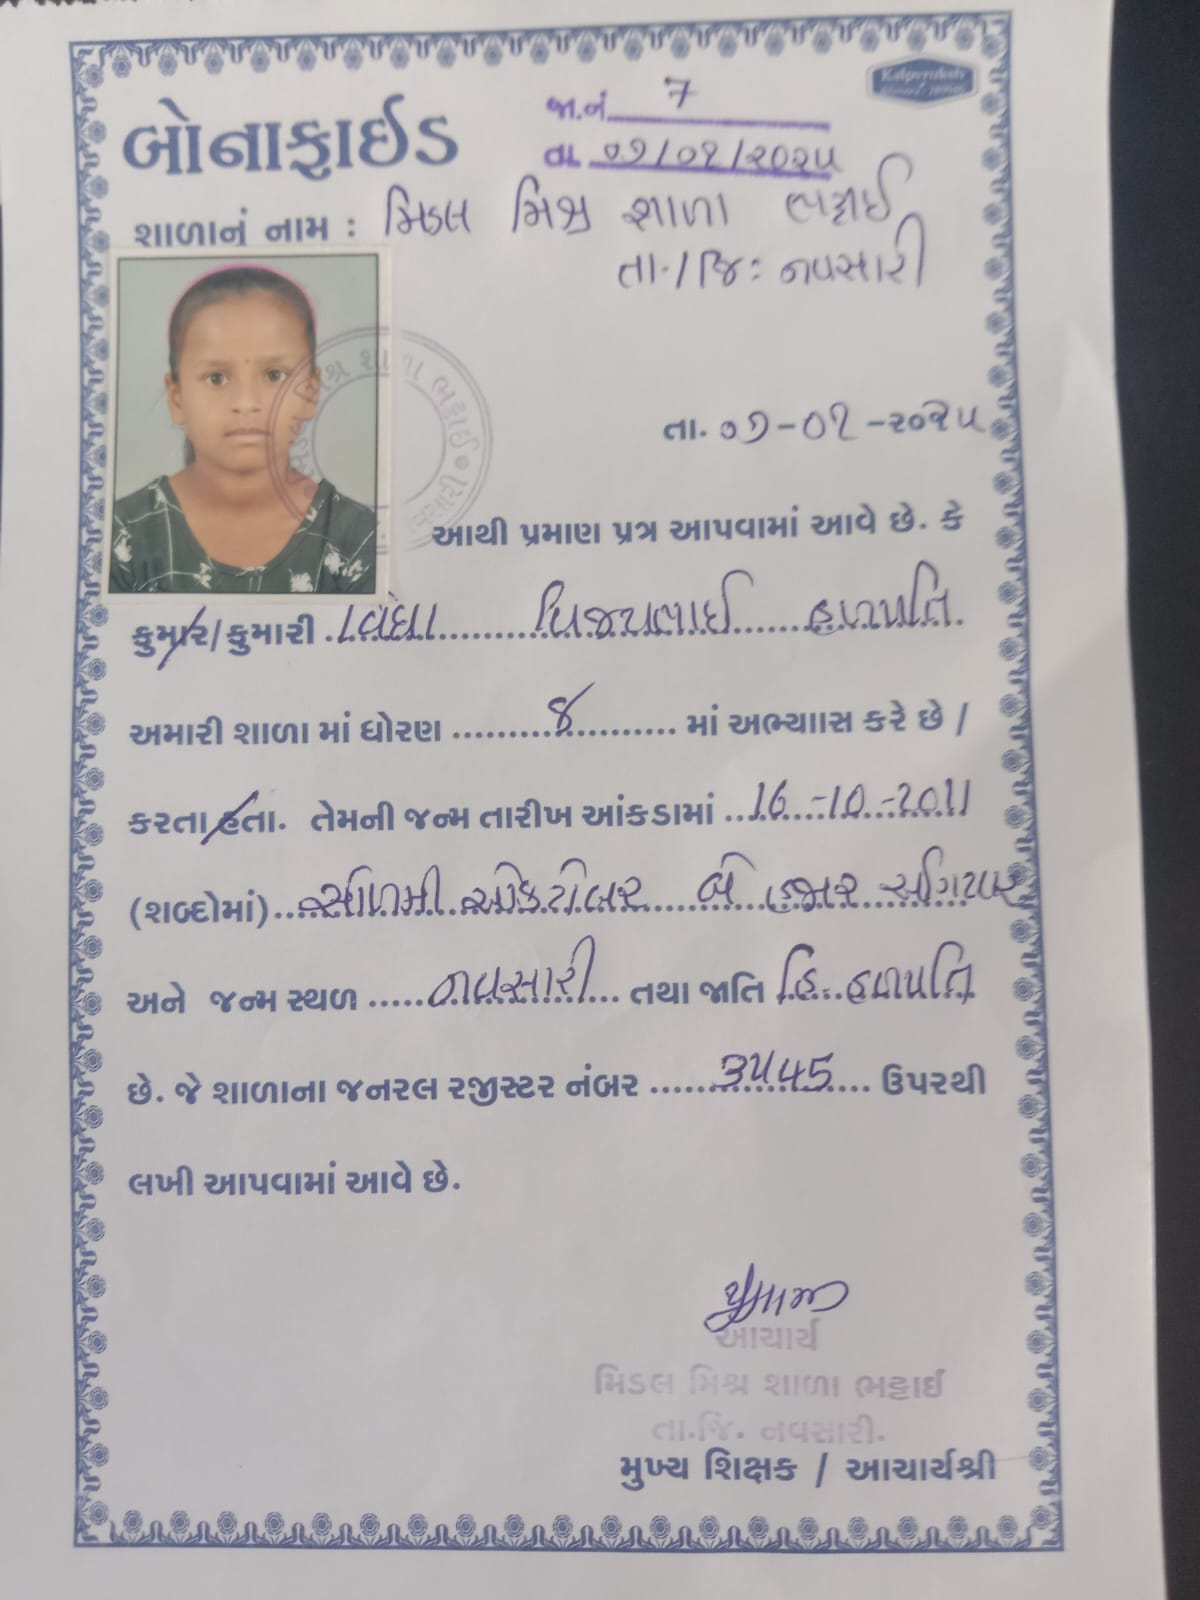 Kalpvruksh
બોનાફાઈડ
જા.નં. 7
તા. ૦૭/૦૧/૨૦૨૫
શાળાનું નામ : મિડલ મિશ્ર શાળા ભટ્ટાઈ
તા./જિ: નવસારી
તા. ૦૭-૦૧-૨૦૨૫
આથી પ્રમાણ પત્ર આપવામાં આવે છે. કે
કુમાર/કુમારી વિજયભાઈ હળપતિ.
અમારી શાળા માં ધોરણ ૪ માં અભ્યાાસ કરે છે /
કરતા હતા. તેમની જન્મ તારીખ આંકડામાં 16-10-2011
(શબ્દોમાં) સોળમી ઓક્ટોબર બે હજાર અગિયાર
અને જન્મ સ્થળ નવસારી તથા જાતિ હિ. હળપતિ
છે. જે શાળાના જનરલ રજીસ્ટર નંબર ૩૫45 ઉપરથી
લખી આપવામાં આવે છે.
આચાર્ય
મિડલ મિશ્ર શાળા ભટ્ટાઈ
તા.જિ. નવસારી.
મુખ્ય શિક્ષક / આચાર્યશ્રી